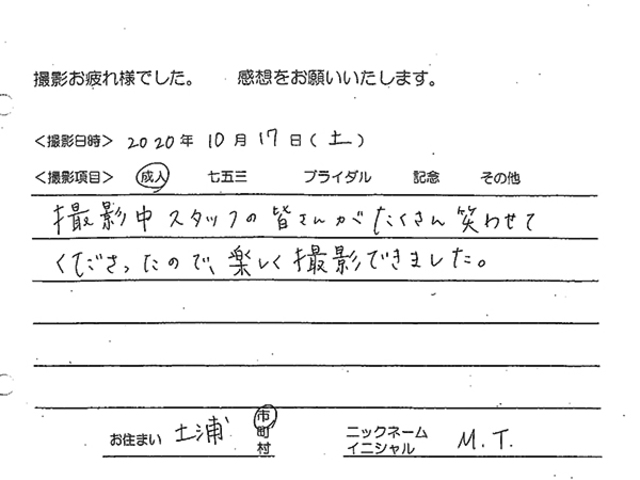 撮影お疲れ様でした。 感想をお願いいたします。
<撮影日時> 2020年 10月 17日(土)
<撮影項目> 成人 七五三 ブライダル 記念 その他
撮影中スタッフの皆さんがたくさん笑わせて
くださったので、楽しく撮影できました。
お住まい 土浦 市 町 村 ニックネーム イニシャル M.T.